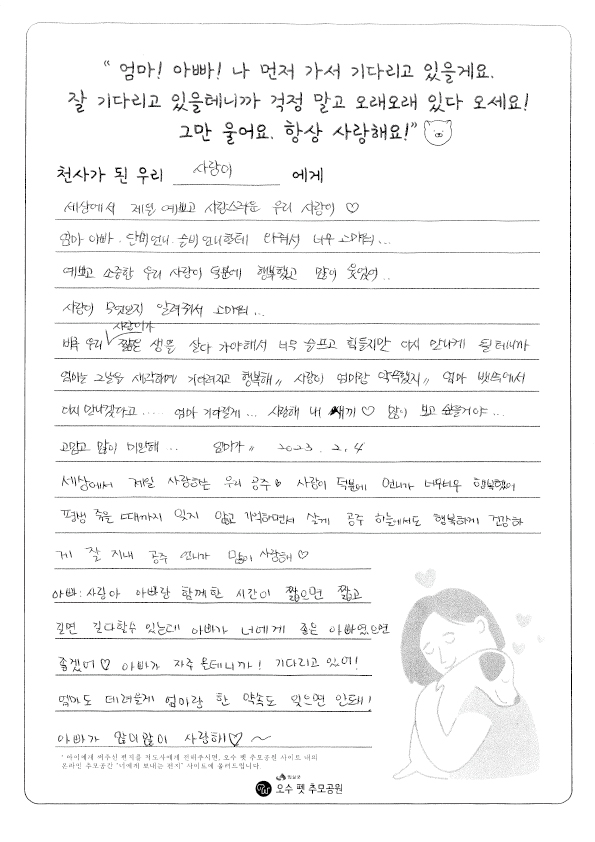 “ 엄마! 아빠! 나 먼저 가서 기다리고 있을게요.
잘 기다리고 있을테니까 걱정 말고 오래오래 있다 오세요!
그만 울어요. 항상 사랑해요!”
천사가 된 우리 사랑이 에게
세상에서 제일 예쁘고 사랑스러운 우리 사랑이 ♡
엄마 아빠. 단비언니. 슬비언니한테 와줘서 너무 고마워...
예쁘고 소중한 우리 사랑이 덕분에 행복했고 많이 웃었어..
사랑이 무엇인지 알려줘서 고마워...
비록 우리 사랑이가 짧은 생을 살다 가야해서 너무 슬프고 힘들지만 다시 만나게 될테니까
엄마는 그날을 생각하며 기다려지고 행복해〃 사랑이 엄마랑 약속했지〃 엄마 뱃속에서
다시 만나겠다고..... 엄마 기다릴게... 사랑해 내 새끼 ♡ 많이 보고 싶을거야...
고맙고 많이 미안해.. 엄마가〃 2023. 2. 4
세상에서 제일 사랑하는 우리 공주 사랑이 덕분에 언니가 너무너무 행복했어
평생 죽을 때까지 잊지 않고 기억하면서 살게 공주 하늘에서도 행복하게 건강하
게 잘 지내 공주 언니가 많이 사랑해 ♡
아빠: 사랑아 아빠랑 함께한 시간이 짧으면 짧고
길면 길다할수 있는데 아빠가 너에게 좋은 아빠였으면
좋겠어 ♡ 아빠가 자주 올테니까! 기다리고 있어!
엄마도 데려올게 엄마랑 한 약속도 잊으면 안돼!
아빠가 많이많이 사랑해 ♡ ~
* 아이에게 써주신 편지를 지도사에게 전해주시면, 오수 펫 추모공원 사이트 내의
온라인 추모공간 '너에게 보내는 편지' 사이트에 올려드립니다.
오수 펫 추모공원